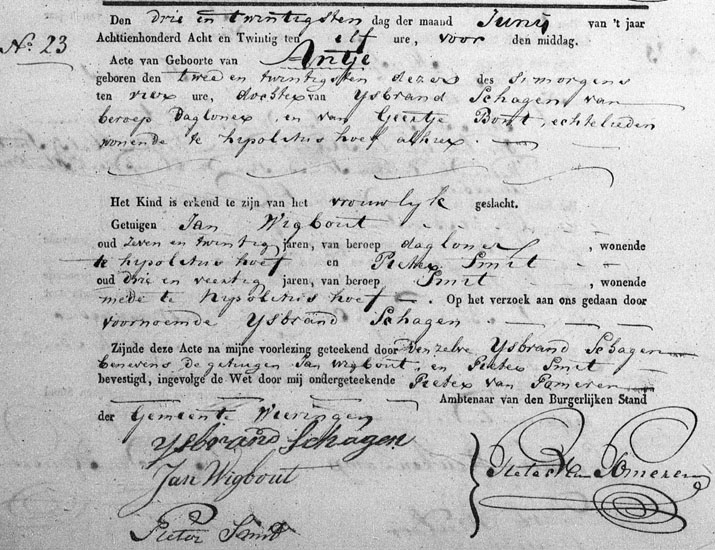 Nº 23
Den drie en twintigsten dag der maand Juny van 't jaar
Achttienhonderd Acht en Twintig ten elf ure, voor den middag.
Acte van Geboorte van Antje
geboren den twee en twintigsten dezer des smorgens
ten vier ure, dochter van Ysbrand Schagen van
beroep Dagloner, en van Geertje Bont, echtelieden
wonende te hipolitus hoef alhier.
Het Kind is erkend te zijn van het vrouwlyk geslacht.
Getuigen Jan Wigbout
oud zeven en twintig jaren, van beroep dagloner, wonende
te hipolitus hoef en Pieter Smit
oud drie en veertig jaren, van beroep Smit, wonende
mede te hipolitus hoef. Op het verzoek aan ons gedaan door
voornoemde Ysbrand Schagen
Zijnde deze Acte na mijne voorlezing geteekend door denzelve Ysbrand Schagen
benevens de getuigen Jan Wigbout en Pieter Smit
bevestigd, ingevolge de Wet door mij ondergeteekende Pieter van Pameren
Ambtenaar van den Burgerlijken Stand
der Gemeente Wieringen
Ysbrand Schagen
Jan Wigbout
Pieter Smit
Pieter Van Pameren